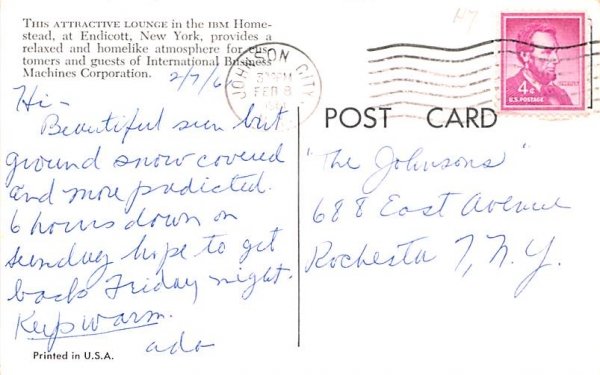 THIS ATTRACTIVE LOUNGE in the IBM Home-
stead, at Endicott, New York, provides a
relaxed and homelike atmosphere for cus-
tomers and guests of International Business
Machines Corporation.
2/7/6
Hi-
Beautiful sun but
ground snow covered
and more predicted.
6 hours down on
Sunday hope to get
back Friday night.
Keep warm.
ado
Printed in U.S.A.
JOHNSON CITY
PM
FEB 8
4¢
U.S. POSTAGE
POST CARD
"The Johnsons"
688 East Avenue
Rochester 7, N.Y.